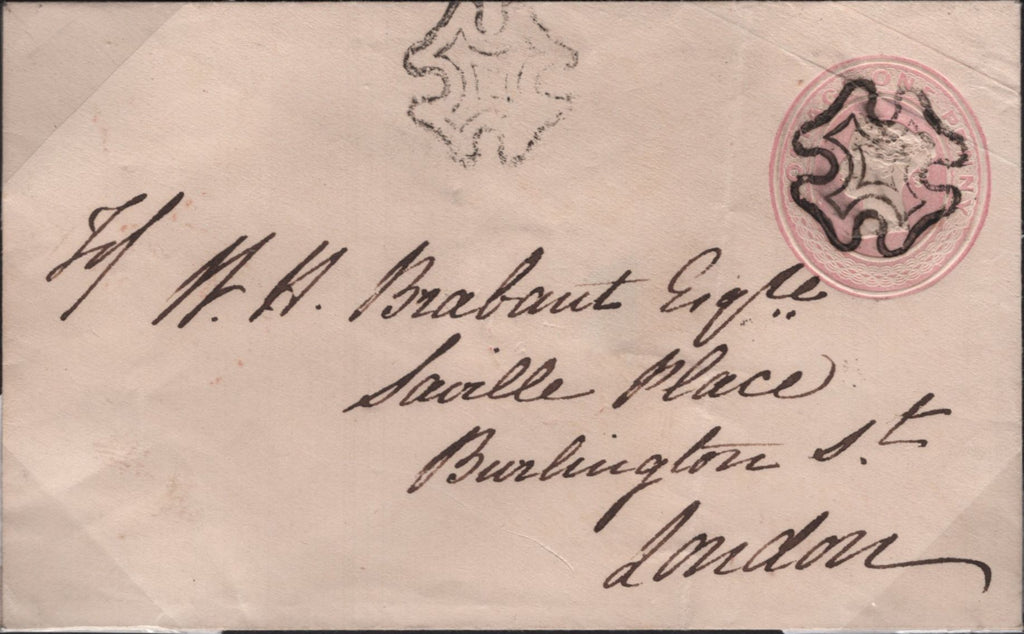 W. H. Brabant Esqre
Saville Place
Burlington St.
London